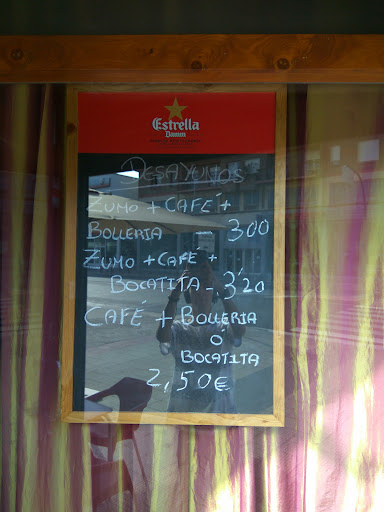 Estrella
Damm
DESAYUNOS
ZUMO + CAFÉ +
BOLLERIA - 3'00
ZUMO + CAFÉ +
BOCATITA - 3'20
CAFÉ + BOLLERIA
Ó
BOCATITA
2,50€